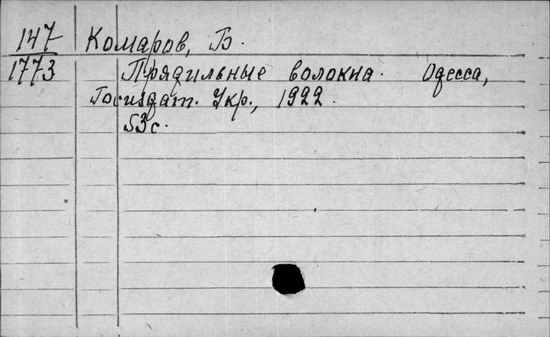 147 Комаров, Б.
1773 Прядильные волокна. Одесса,
Госиздат. Укр., 1922.
53с.